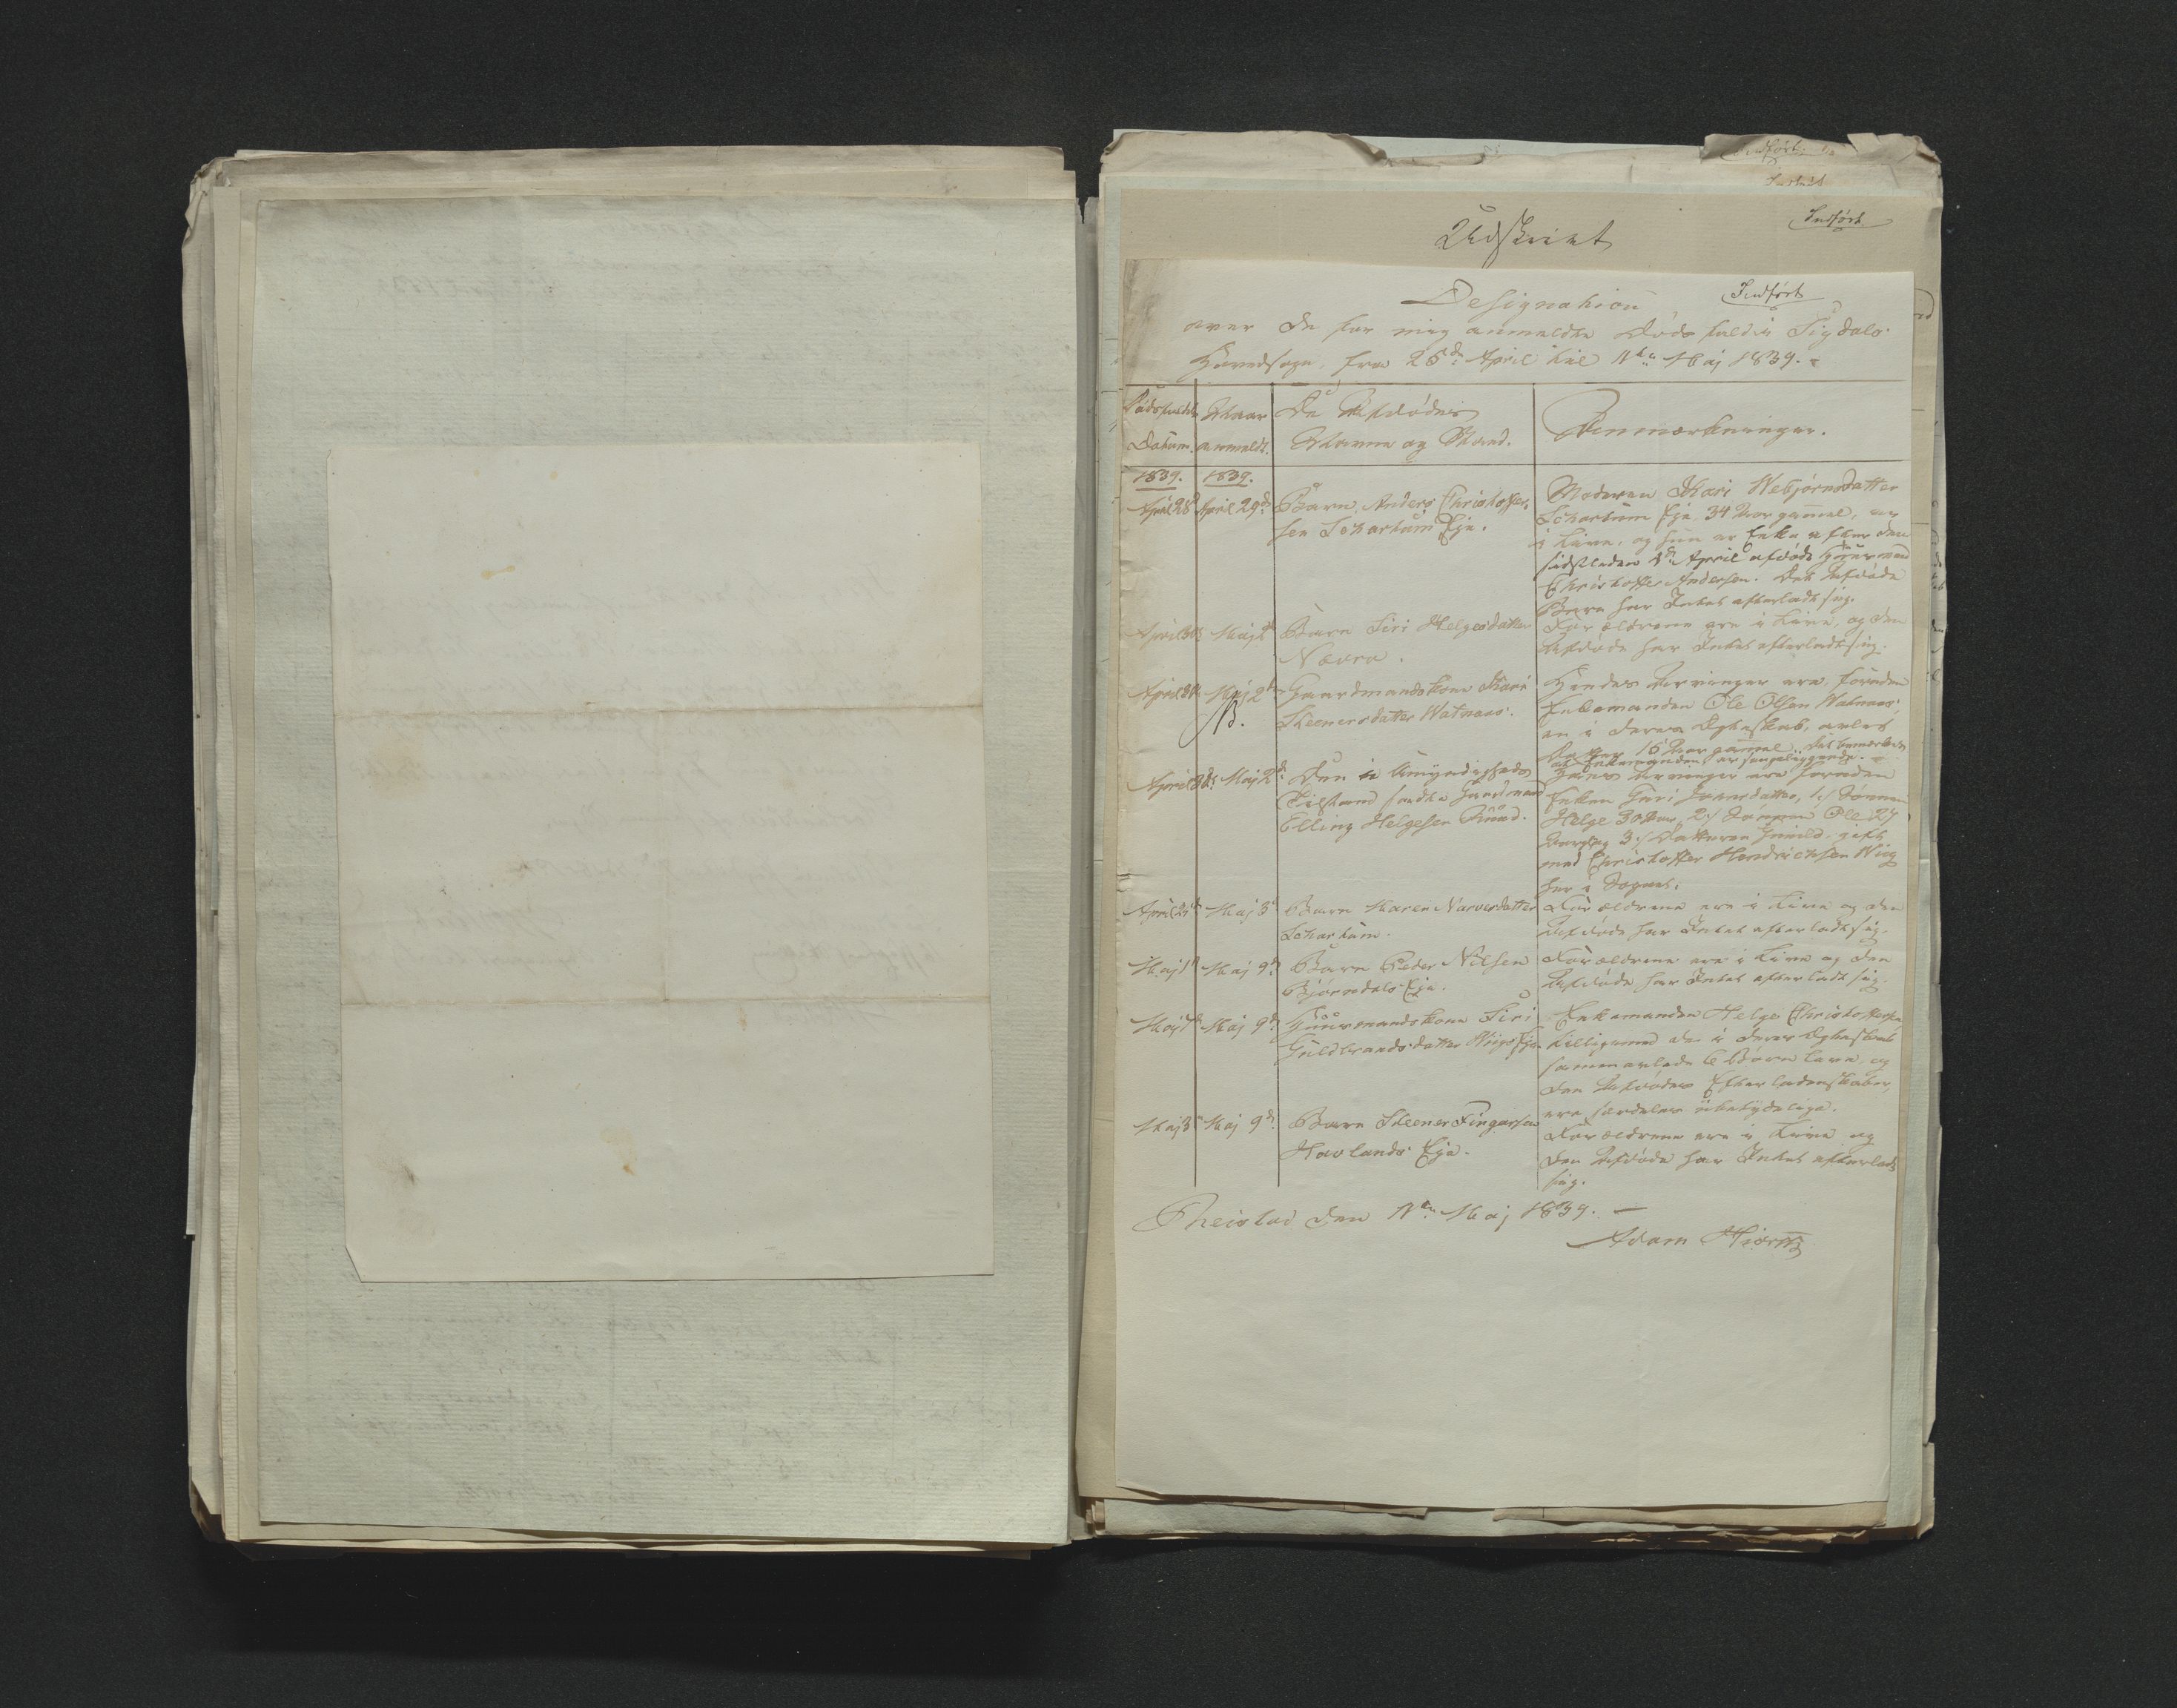 Indført
Indført
Indført
Udskrivt
Designation
Indført
over de for mig anmeldte Dødsfald i Sigdals
Hovedsogn, fra 25de April til 11te Maj 1839.
Dødsfaldets
Datum.
Naar
anmeldt.
De Afdødes
Navne og Stand.
Anmærkninger.
1839.
1839.
April 28d
April 29d
Barn Anders Christoffer-
sen Schartum Eje.
Moderen Kari Webjørnsdatter
Schartum Eje 34 Aar gammel, er
i Live, og hun er Enke efter den
sidstleden April afdøde Huusmand
Christoffer Andersen. Det Afdøde
Barn har Intet efterladt sig.
April 30
Maj 2d
Barn Siri Helgesdatter
Nævra.
Forældrene ere i Live, og den
Afdøde har Intet efterladt sig.
April
Maj 2d
Gaardmandskone Kari
Steenersdatter Watnaas.
Hendes Arvinger ere, foruden
Enkemanden Ole Olsen Watnaas,
en i deres Egteskab avlet
Datter 16 Aar gammel. Det bemærkes
at Enkemanden er sengeliggende.
B.
April
Maj 2d
Den i Umyndigheds
Tilstand satte Gaardmand
Elling Helgesen Ruud.
Hans Arvinger ere foruden
Enken Guri Iversdatter, 1) Sønnen
Helge 30 Aar, 2) Sønnen Ole 27
Aar og 3) Datteren Gunild, gift
med Christoffer Hendrichsen Wiig
her i Sognet.
April 21d
Maj 3d
Barn Maren Narvesdatter
Schartum.
Forældrene ere i Live og den
Afdøde har Intet efterladt sig.
Maj 1d
Maj 9d
Barn Peder Nilsen
Bjørndals Eje.
Forældrene ere i Live og den
Afdøde har Intet efterladt sig.
Maj 7d
Maj 9d
Huusmandskone Siri
Guldbrandsdatter Wiigs Eje.
Enkemanden Helge Christoffersen
tilligemed de i deres Egteskab
sammenavlede 6 Børn leve, og
den Afdødes Efterladenskaber,
ere særdeles ubetydelige.
Maj 3d
Maj 9d
Barn Steener Fingarsen
Hovlands Eje.
Forældrene ere i Live og
den Afdøde har Intet efterladt
sig.
Theistad den 11te Maj 1839.
Adam Hiorth